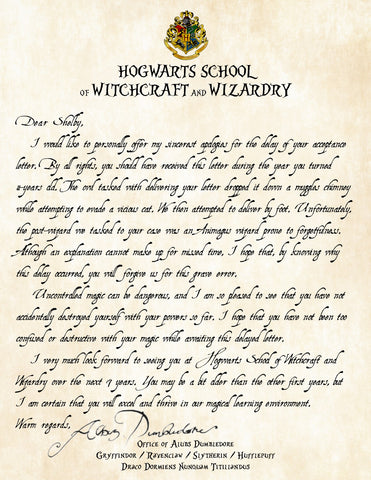 HOGWARTS SCHOOL
OF WITCHCRAFT AND WIZARDRY
Dear Shelby,
I would like to personally offer my sincerest apologies for the delay of your acceptance
letter. By all rights, you should have received this letter during the year you turned
11-years old. The owl tasked with delivering your letter dropped it down a muggles chimney
while attempting to evade a vicious cat. We then attempted to deliver by foot. Unfortunately,
the post-wizard we tasked to your case was an Animagus wizard prone to forgetfulness.
Although an explanation cannot make up for missed time, I hope that, by knowing why
this delay occurred, you will forgive us for this grave error.
Uncontrolled magic can be dangerous, and I am so pleased to see that you have not
accidentally destroyed yourself with your powers so far. I hope that you have not been too
confused or destructive with your magic while awaiting this delayed letter.
I very much look forward to seeing you at Hogwarts School of Witchcraft and
Wizardry over the next 7 years. You may be a bit older than the other first years, but
I am certain that you will excel and thrive in our magical learning environment.
Warm regards,
Albus Dumbledore
OFFICE OF ALUBS DUMBLEDORE
GRYFFINDOR / RAVENCLAW / SLYTHERIN / HUFFLEPUFF
DRACO DORMIENS NUNQUAM TITILLANDUS